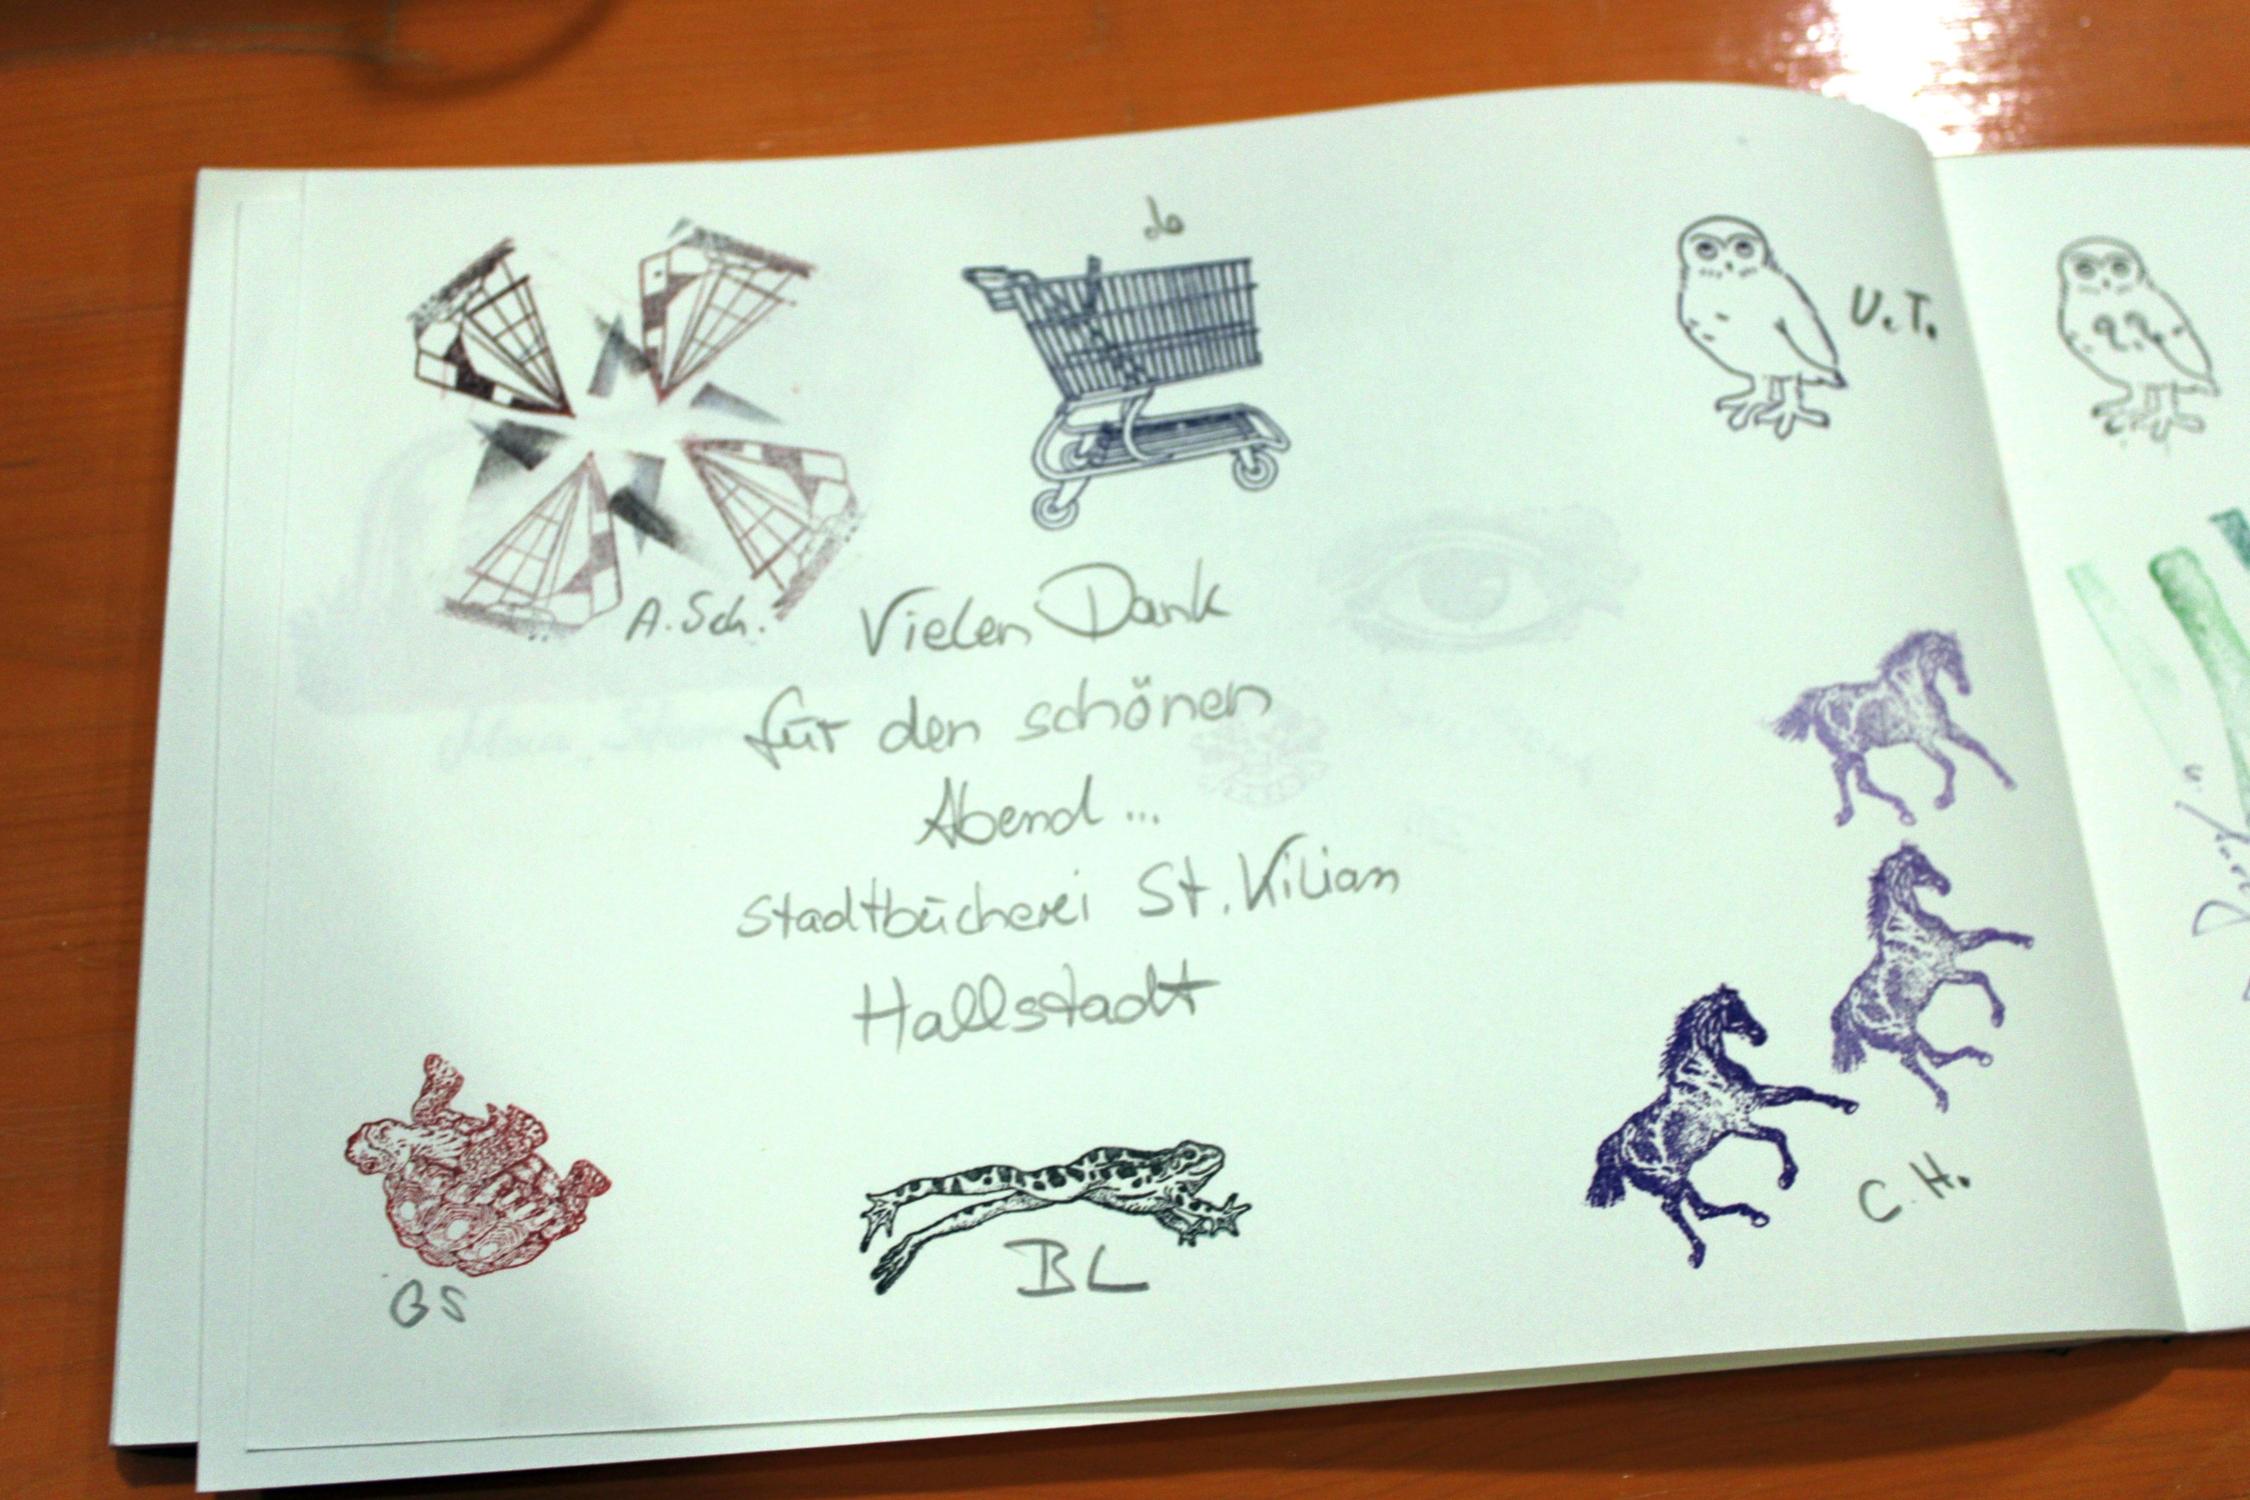 do
U.T.
A.Sch.
Vielen Dank
für den schönen
Abend...
Stadtbücherei St. Kilian
Hallstadt
C.H.
GS
BL